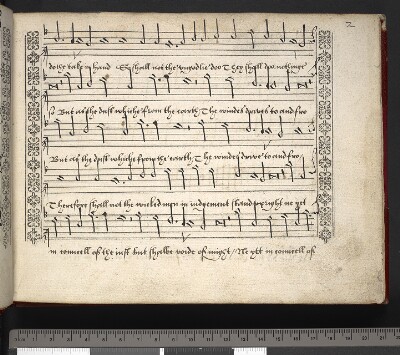 2
do we take in hand So shall not the ungodlie doo They shall doo nothinge
so But as the dust whiche from the earth The windes drives to and fro
But as the dust whiche from the earth The windes drives to and fro
Therefore shall not the wicked men in iudgement stand upright ne yet
in councell of the iust but shalbe voide of might Ne yet in councell of